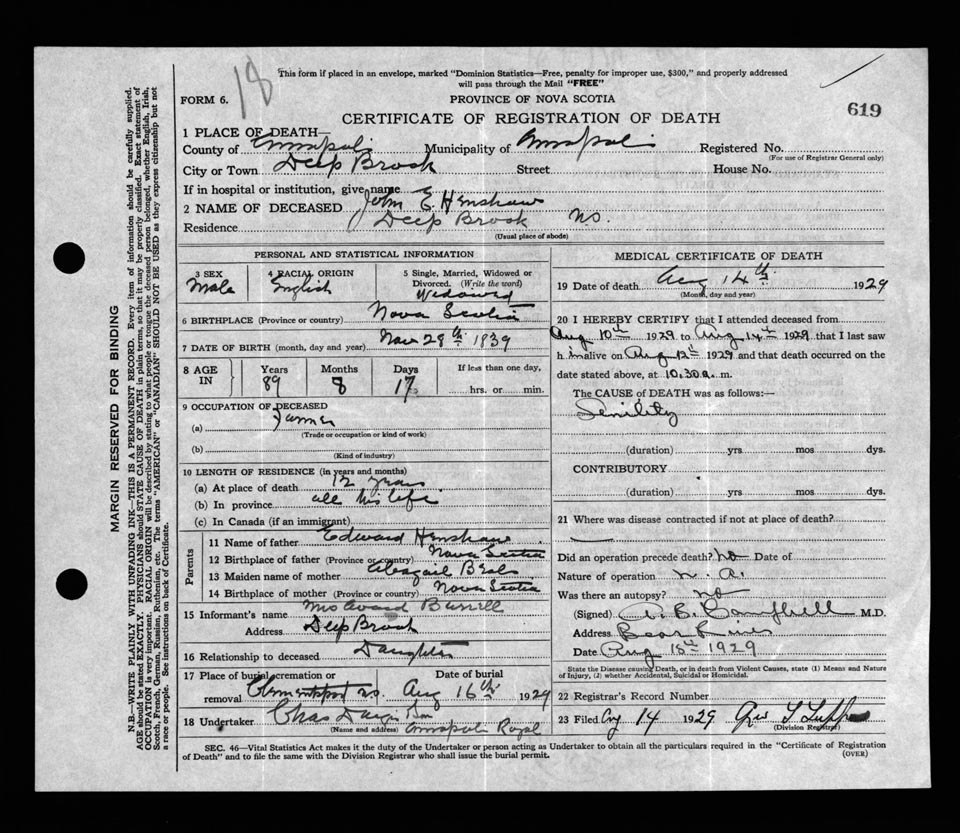 18
This form if placed in an envelope, marked "Dominion Statistics—Free, penalty for improper use, $300," and properly addressed
will pass through the Mail "FREE"
FORM 6.
PROVINCE OF NOVA SCOTIA
619
CERTIFICATE OF REGISTRATION OF DEATH
1 PLACE OF DEATH—
County of Annapolis Municipality of Annapolis Registered No.
(For use of Registrar General only)
City or Town Deep Brook Street House No.
If in hospital or institution, give name
2 NAME OF DECEASED John E. Henshaw
Residence Deep Brook N.S.
(Usual place of abode)
PERSONAL AND STATISTICAL INFORMATION
3 SEX Male
4 RACIAL ORIGIN English
5 Single, Married, Widowed or
Divorced. (Write the word)
Widowed
6 BIRTHPLACE (Province or country) Nova Scotia
7 DATE OF BIRTH (month, day and year) Nov 28th 1839
8 AGE IN Years 89 Months 8 Days 17 If less than one day,
hrs. or min.
9 OCCUPATION OF DECEASED
(a) Farmer
(Trade or occupation or kind of work)
(b)
(Kind of industry)
10 LENGTH OF RESIDENCE (in years and months)
(a) At place of death 12 years
(b) In province all his life
(c) In Canada (if an immigrant)
Parents
11 Name of father Edward Henshaw
12 Birthplace of father (Province or country) Nova Scotia
13 Maiden name of mother Abagail Beals
14 Birthplace of mother (Province or country) Nova Scotia
15 Informant's name Mrs Avard Burrell
Address Deep Brook
16 Relationship to deceased Daughter
17 Place of burial, cremation or
removal Clementsport N.S.
Date of burial
Aug 16th 1929
18 Undertaker Chas
(Name and address) Annapolis Royal
MEDICAL CERTIFICATE OF DEATH
19 Date of death Aug 14th 1929
(Month, day and year)
20 I HEREBY CERTIFY that I attended deceased from
Aug 10th 1929 to Aug 14th 1929 that I last saw
h im alive on Aug 12th 1929 and that death occurred on the
date stated above, at 10.30 a. m.
The CAUSE OF DEATH was as follows:—
Senility
(duration) yrs mos dys.
CONTRIBUTORY
(duration) yrs. mos. dys.
21 Where was disease contracted if not at place of death?
Did an operation precede death? no Date of
Nature of operation n. a.
Was there an autopsy? no
(Signed) Campbell M.D.
Address Bear River
Date Aug 15th 1929
State the Disease causing Death, or in death from Violent Causes, state (1) Means and Nature
of Injury, (2) whether Accidental, Suicidal or Homicidal.
22 Registrar's Record Number
23 Filed Aug 14 1929
(Division Registrar)
SEC. 46—Vital Statistics Act makes it the duty of the Undertaker or person acting as Undertaker to obtain all the particulars required in the "Certificate of Registration
of Death" and to file the same with the Division Registrar who shall issue the burial permit.
(OVER)
MARGIN RESERVED FOR BINDING
N.B.—WRITE PLAINLY WITH UNFADING INK—THIS IS A PERMANENT RECORD. Every item of information should be carefully supplied.
AGE should be stated EXACTLY. PHYSICIANS should STATE CAUSE OF DEATH in plain terms, so that it may be properly classified. Exact statement of
OCCUPATION is very important. RACIAL ORIGIN will be described by stating to what people or tongue the deceased person belonged, whether English, Irish,
Scotch, French, German, Russian, Ruthenian, etc. The terms "AMERICAN" or "CANADIAN" SHOULD NOT BE USED as they express citizenship but not
a race or people. See instructions on back of Certificate.